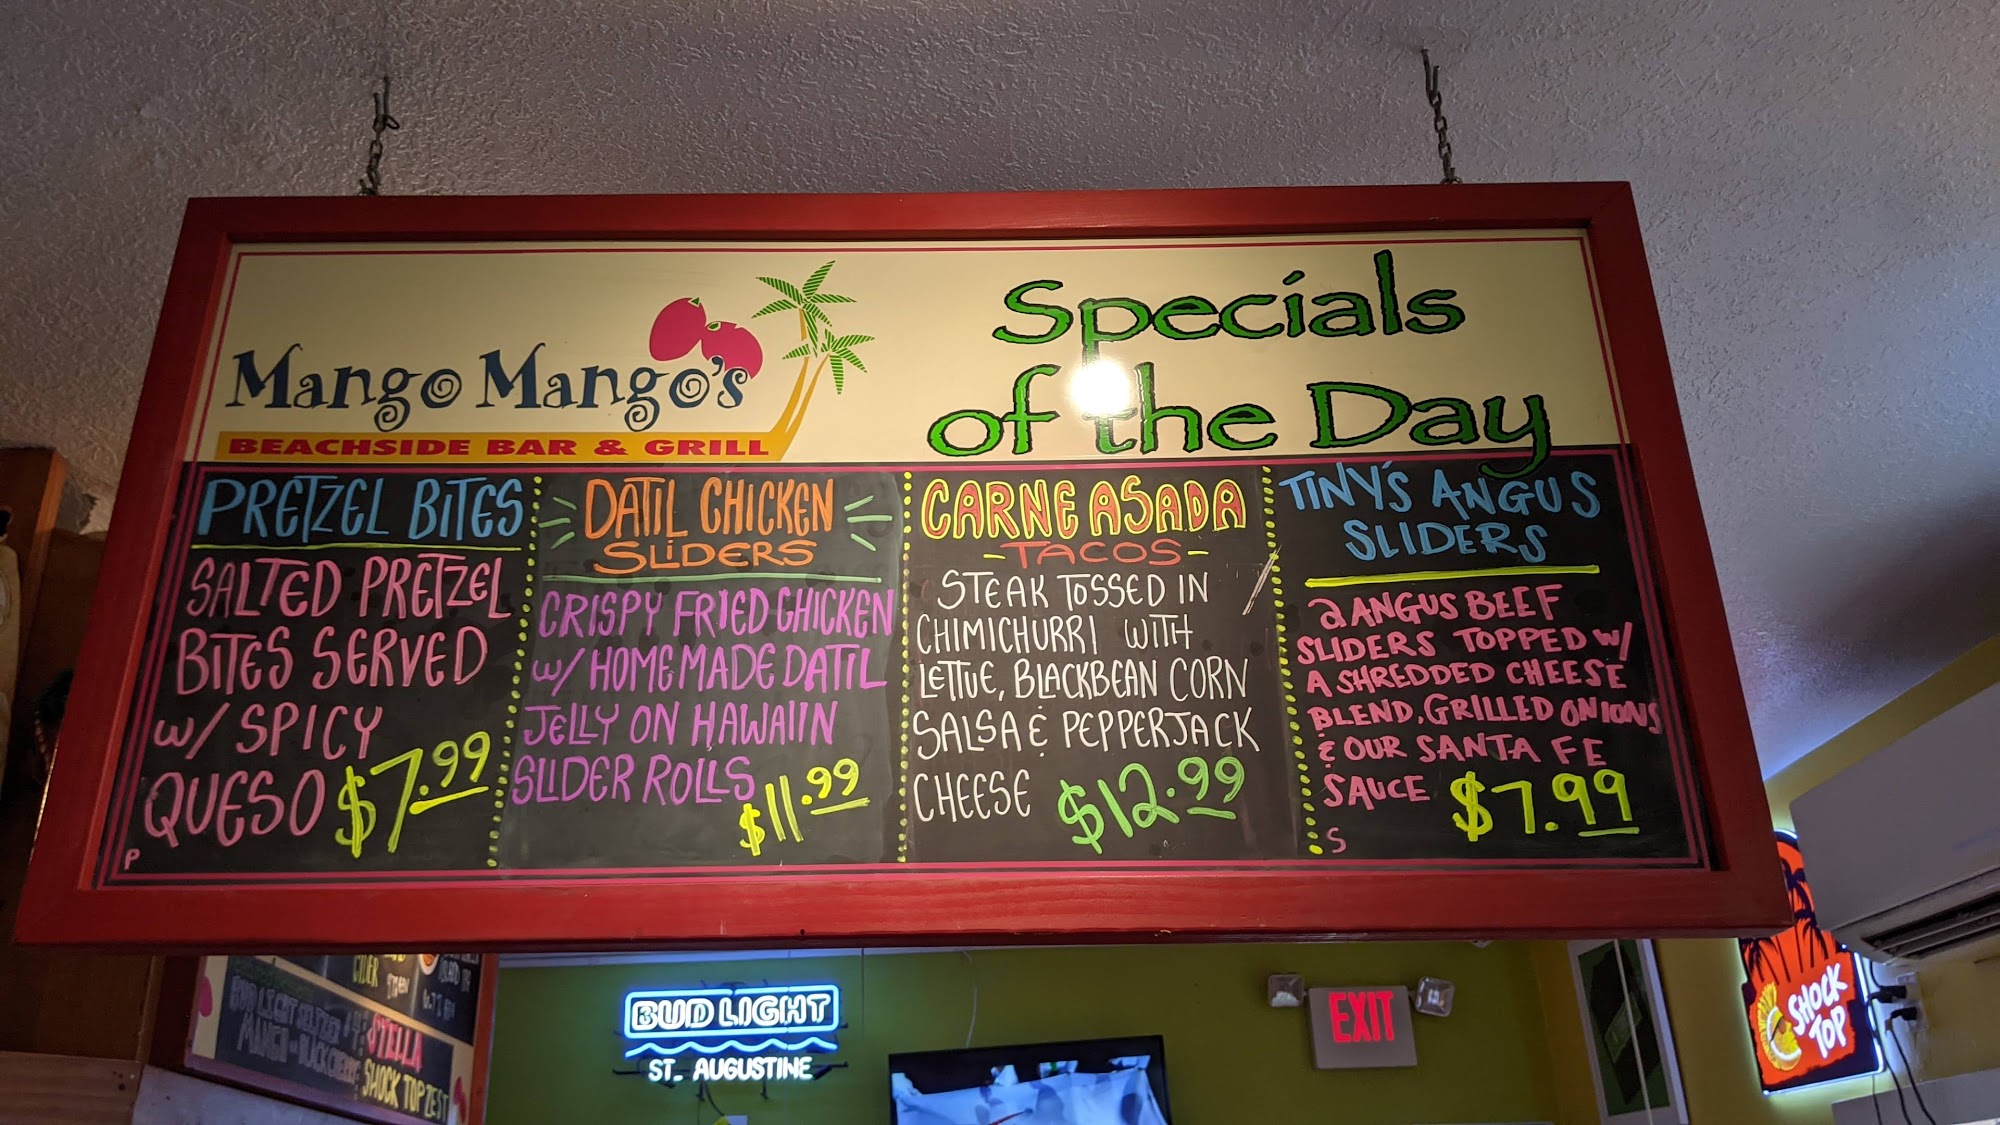 Mango Mango's
BEACHSIDE BAR & GRILL
Specials
of the Day
PRETZEL BITES
SALTED PRETZEL
BITES SERVED
w/ SPICY
QUESO $7.99
P
DATIL CHICKEN
SLIDERS
CRISPY FRIED CHICKEN
w/ HOMEMADE DATIL
JELLY ON HAWAIIN
SLIDER ROLLS
$11.99
CARNE ASADA
-TACOS-
STEAK TOSSED IN
CHIMICHURRI WITH
LETTUE, BLACKBEAN CORN
SALSA & PEPPERJACK
CHEESE $12.99
TINY'S ANGUS
SLIDERS
2 ANGUS BEEF
SLIDERS TOPPED w/
A SHREDDED CHEESE
BLEND, GRILLED ONIONS
& OUR SANTA FE
SAUCE $7.99
S
CIDER
BUD LIGHT SELTZER
MANGO BLACK CHERRY
STELLA
SHOCK TOP ZEST
BUD LIGHT
ST. AUGUSTINE
EXIT
SHOCK
TOP